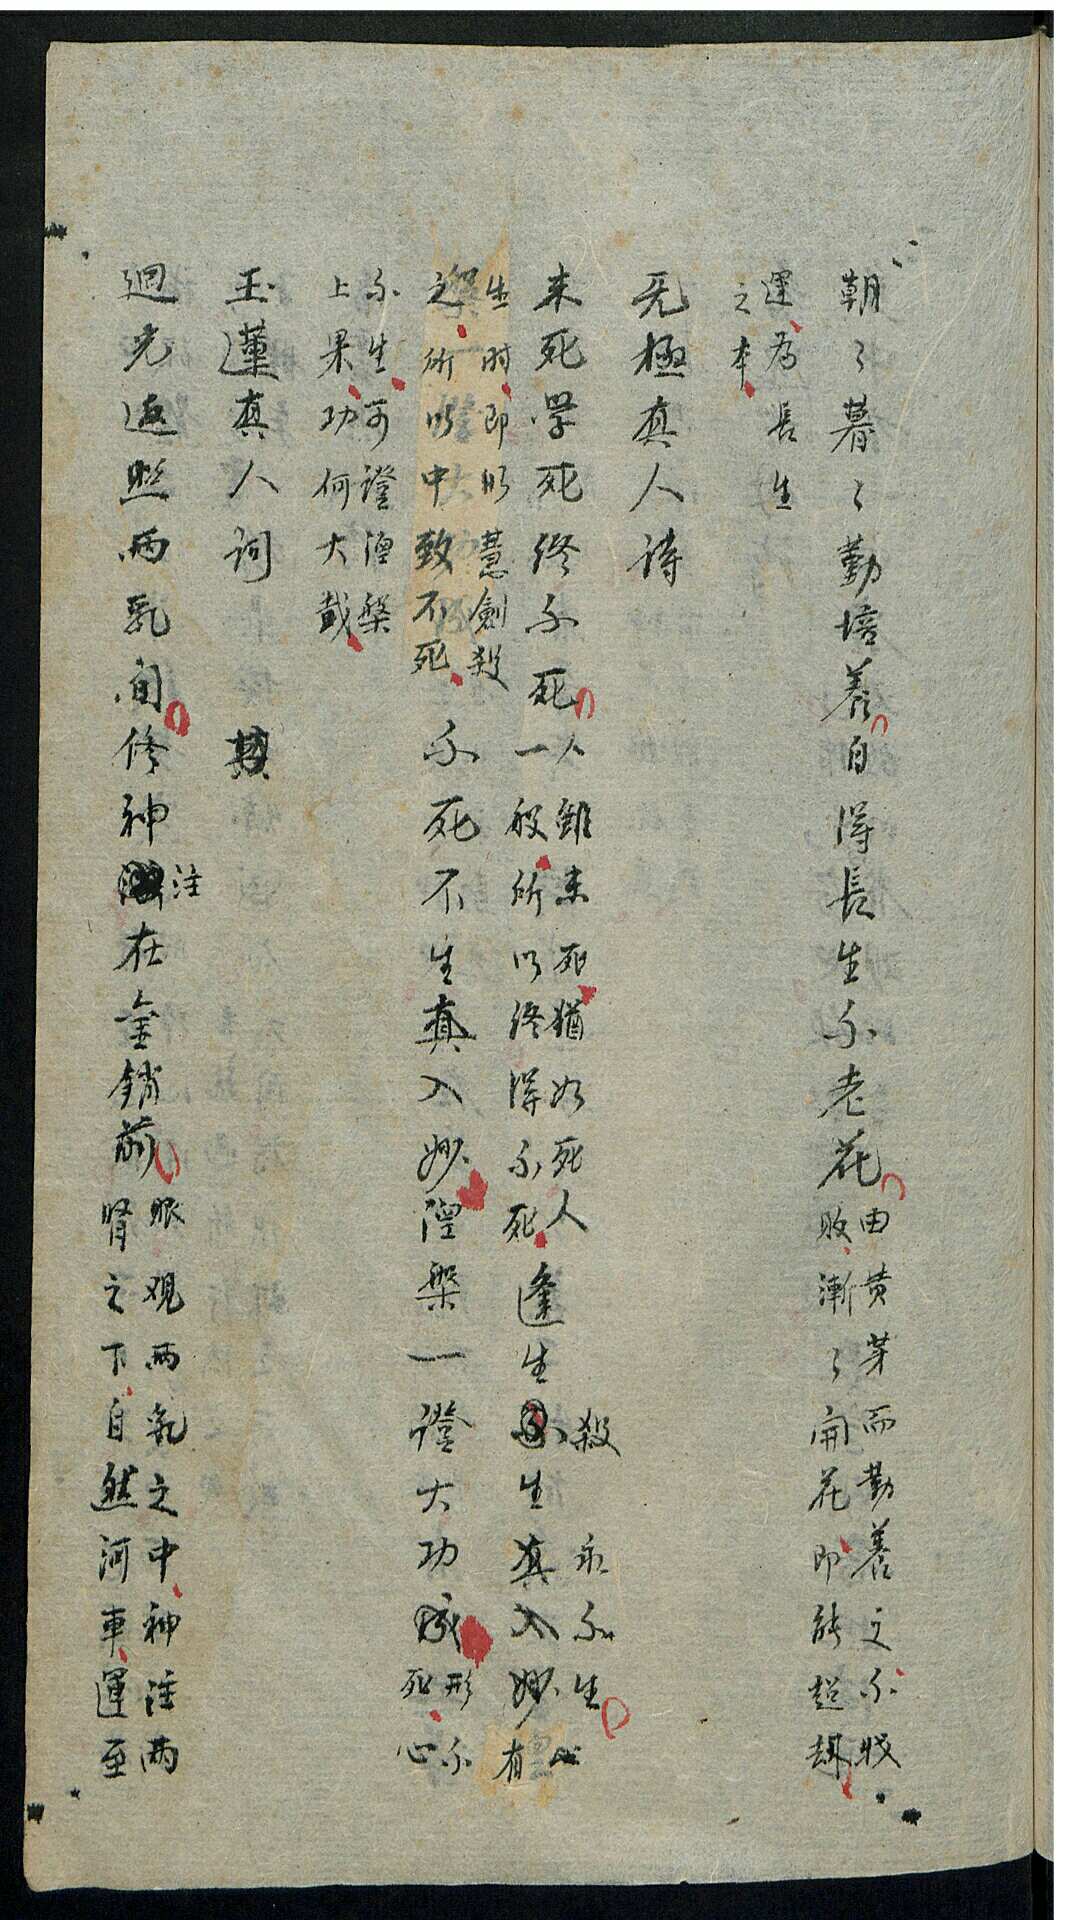 朝〻暮〻勤培养自得長生不老花
由黄芽而勤養之不
敗漸〻開花即能超
運為長生
之本
无極真人诗
未死学死终不死
人雖未死猶如死人
一般所以终得不死
逢生殺生真入妙
永不生
有心
生时即以慧劍殺
之所以中致不死
不死不生真入妙
涅槃一證大功成
形不
死心
不生可證涅槃
上果功何大哉
玉蓮真人词
迴光返照两乳间修神注在金鎖前
眼观两乳之中神注两
腎之下自然河車運至